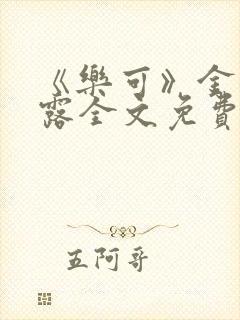 《樂可》金
露全文免費
五阿哥